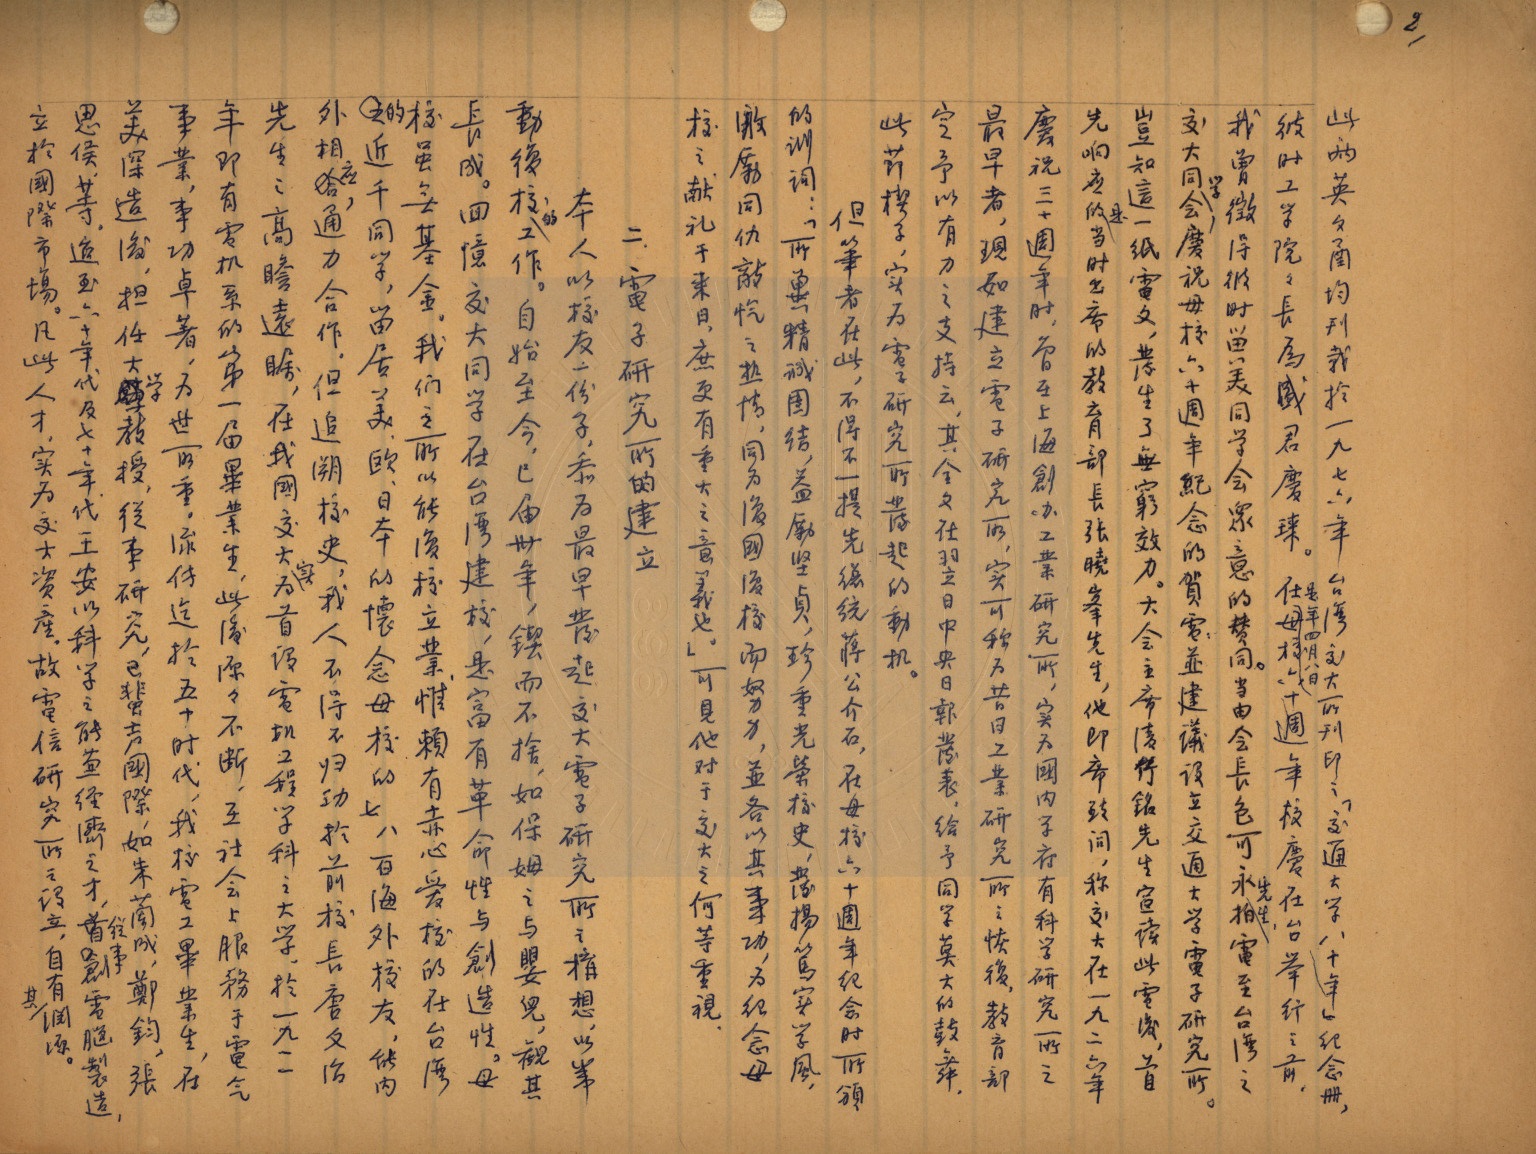 2/
此兩英文函均刊載於一九七六年台灣交大所刊印之「交通大學八十年」紀念冊,
彼时工学院之長為盛君慶琜。在母校六十週年校慶在台举行之前,
是年四月八日
我曾徵得彼时畄美同学会眾意的赞同。当由会長色可永拍電至台湾之
先生,
交大同学会,慶祝母校六十週年紀念的賀電並建議设立交通大学電子研究所。
豈知這一纸電文,发生了無窮效力。大会主席凌竹銘先生宣读此電後,首
先响应的是当时出席的教育部長張曉峯先生,他即席致词,称交大在一九二六年
慶祝三十週年时,曾在上海創办工業研究所,实为國内学府有科学研究所之
最早者,現如建立電子研究所,实可称为昔日工業研究所之恢復,教育部
定予以有力之支持云,其全文在翌日中央日報發表,给予同学莫大的鼓舞,
此节楔子,实为電子研究所发起的動机。
但筆者在此,不得不一提先總統蔣公介石,在母校六十週年纪会时所頒
的训詞:「所冀精诚團结,益勵坚貞,珍重光榮校史,發揚篤实学風,
激勵同仇敵忾之热情,同为復國復校而努力,並各以其事功,为纪念母
校之献礼于来日,庶更有重大之意義也。」可見他对于交大之何等重視.
二.電子研究所的建立
本人以校友一份子,忝为最早发起交大電子研究所之構想,以峯
動復校的工作。自始至今,已届卅年,鍥而不捨,如保姆之与嬰兒,觀其
長成。回憶交大同学在台灣建校,是富有革命性与創造性。母
校虽無基金。我们之所以能復校立業,惟賴有赤心爱校的在台湾
的近千同学,畄居美、欧、日本的懷念母校的七八百海外校友,能内
外相应,通力合作,但追溯校史,我人不得不归功於前校長唐文治
先生之高瞻遠矚,在我國交大实为首设電机工程学科之大学,於一九一一
年即有電机系的第一届畢業生,此後源々不断,在社会上服務于電气
事業,事功卓著,为世所重。流传迄於五十时代,我校電工畢業生,在
美深造後,担任大学教授,從事研究,已蜚声國際,如朱蘭成,鄭鈞,張
思侯,等。迨至六十年代及七十年代王安以科学之能並经濟之才,首創從事電腦製造,
立於國際市場。凡此人才,实为交大资產。故電信研究所之设立,自有其渊源。